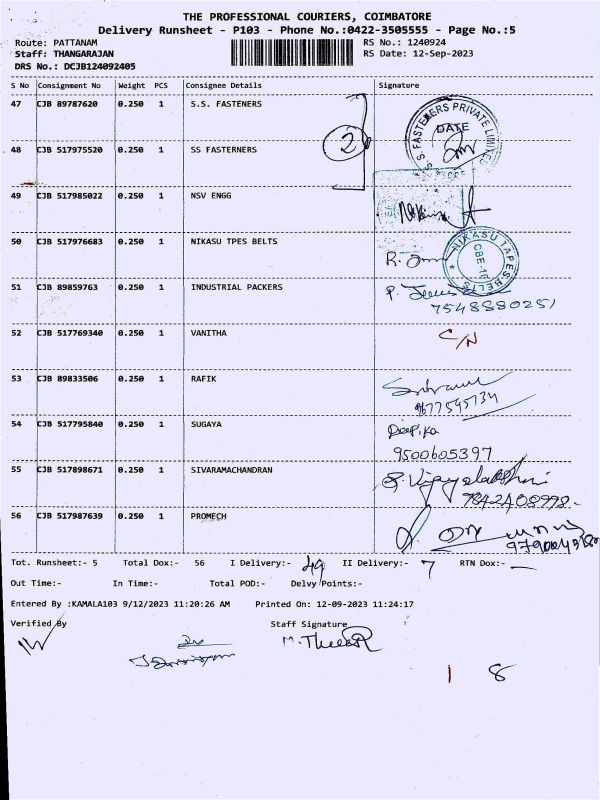 THE PROFESSIONAL COURIERS, COIMBATORE
Delivery Runsheet - P103 - Phone No.:0422-3505555 - Page No.:5
Route: PATTANAM RS No.: 1240924
Staff: THANGARAJAN RS Date: 12-Sep-2023
DRS No.: DCJB124092405
S No Consignment No Weight PCS Consignee Details Signature
47 CJB 89787620 0.250 1 S.S. FASTENERS
S.S. FASTENERS PRIVATE LIMITED
DATE
2
48 CJB 517975520 0.250 1 SS FASTERNERS
49 CJB 517985022 0.250 1 NSV ENGG
50 CJB 517976683 0.250 1 NIKASU TPES BELTS
NIKASU TAPES BELTS
CBE-16
51 CJB 89859763 0.250 1 INDUSTRIAL PACKERS
7548880251
52 CJB 517769340 0.250 1 VANITHA C/N
53 CJB 89833506 0.250 1 RAFIK
9677545734
54 CJB 517795840 0.250 1 SUGAYA Deepika
9500605397
55 CJB 517898671 0.250 1 SIVARAMACHANDRAN
9842408998
56 CJB 517987639 0.250 1 PROMECH
Tot. Runsheet:- 5 Total Dox:- 56 I Delivery:- 49 II Delivery:- 7 RTN Dox:- —
Out Time:- In Time:- Total POD:- Delvy Points:-
Entered By :KAMALA103 9/12/2023 11:20:26 AM Printed On: 12-09-2023 11:24:17
Verified By Staff Signature
1 8